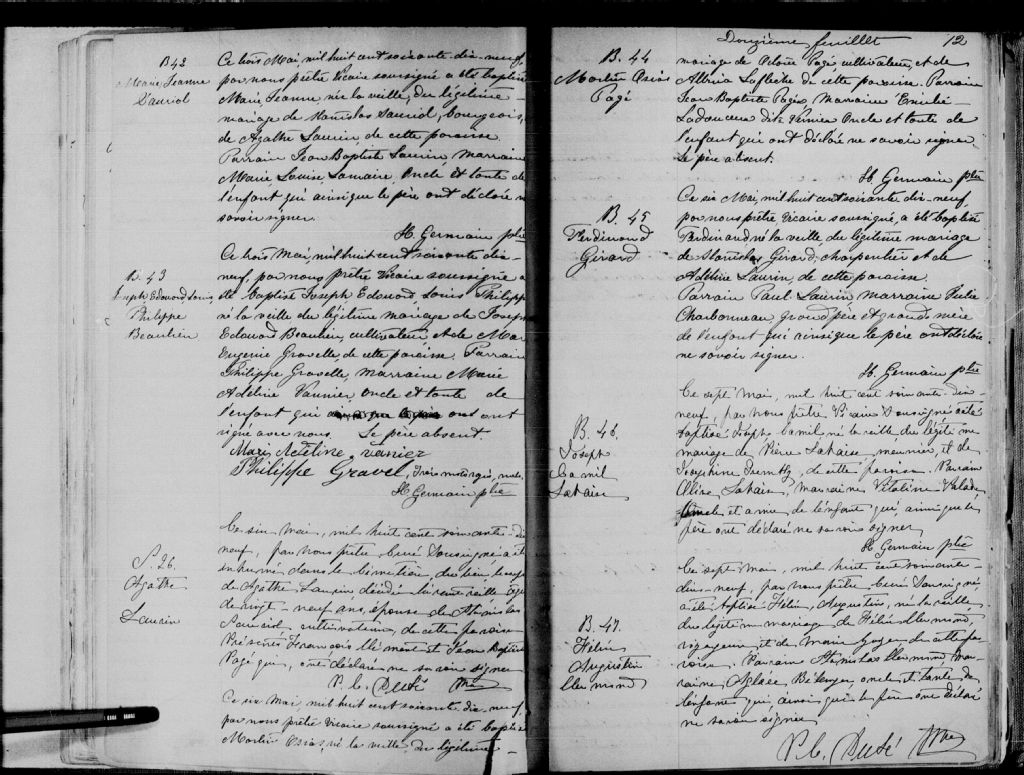 B 42
Marie Jeanne
Vauriol
Ce trois Mai, mil huit cent soixante dix-neuf,
par nous prêtre Vicaire soussigné a été baptisée
Marie, Jeanne, née la veille, du légitime
mariage de Stanislas Vauriol, bourgeois,
de Agathe Laurin, de cette paroisse.
Parrain Jean Baptiste Laurin, Marraine
Marie Louise Lamaire Oncle et tante de
l'enfant qui ainsi que le père ont déclaré ne
savoir signer.
H. Germain ptre
B. 43
Joseph Edouard Louis
Philippe
Beaulieu
Ce trois Mai, mil huit cent soixante dix-
neuf, par nous prêtre Vicaire soussigné a
été baptisé Joseph Edouard, Louis Philippe
né la veille du légitime mariage de Joseph
Edouard Beaulieu, cultivateur et de Marie
Eugenie Gravelle, de cette paroisse. Parrain
Philippe Gravelle, marraine Marie
Adeline Vannier oncle et tante de
l'enfant qui ont
signé avec nous. Le père absent.
Marie Adeline Vanier
Philippe Gravel, Trois mots rayés, nuls
H Germain ptre
S. 26
Agathe
Laurin
Ce six Mai, mil huit cent soixante-dix
neuf, par nous prêtre Curé Soussigné a été
inhumé dans le Cimetière du lieu, le corps
de Agathe Laurin décédée la veille, agée
de vingt-neuf ans, épouse de Stanislas
cultivateur, de cette paroisse
Présents François Clément et Jean Baptiste
Pagé qui, ont déclaré ne savoir signer
P. C. Dubé Ptre
Ce six Mai, mil huit cent soixante dix-neuf,
par nous prêtre Vicaire soussigné a été baptisé
Martin Osias, né la veille, du légitime
Douzième feuillet 12
B. 44
Martin Osias
Pagé
mariage de Pagé, cultivateur, et de
Albina Laflèche de cette paroisse. Parrain
Jean Baptiste Pagé, Marraine Emélie
Ladouceur dite Vernier Oncle et tante de
l'enfant qui ont déclaré ne savoir signer
Le père absent.
H. Germain ptre
B. 45
Ferdinand
Girard
Ce six Mai, mil huit cent soixante dix-neuf,
par nous prêtre Vicaire soussigné, a été baptisé
Ferdinand né la veille, du légitime mariage
de Stanislas Girard, charpentier et de
Adeline Laurin, de cette paroisse.
Parrain Paul Laurin marraine Julie
Charbonneau grand père et grand-mère
de l'enfant qui ainsi que le père ont déclaré
ne savoir signer.
H. Germain ptre
B. 46.
Joseph
Camil
Lahaie
Ce sept Mai, mil huit cent soixante-dix-
neuf, par nous prêtre Vicaire Soussigné a été
baptisé Joseph, Camil né la veille du légitime
mariage de Pierre Lahaie, meunier, et de
Josephine Tremblay, de cette paroisse. Parrain
Lahaie, marraine Vitaline
Oncle et amie de l'enfant qui, ainsi que le
père ont déclaré ne savoir signer
H Germain ptre
B. 47.
Hélin
Augustin
Ce sept Mai, mil huit cent soixante-
dix-neuf, par nous prêtre Curé Soussigné,
a été baptisé Hélin, Augustin, né la veille
du légitime mariage de Hélin
voyageur et de Marie Goyer de cette pa-
roisse. Parrain Stanislas mar-
raine Aglaée Bélanger oncle et tante de
l'enfant qui, ainsi que le père ont déclaré
ne savoir signer
P. C. Dubé Ptre